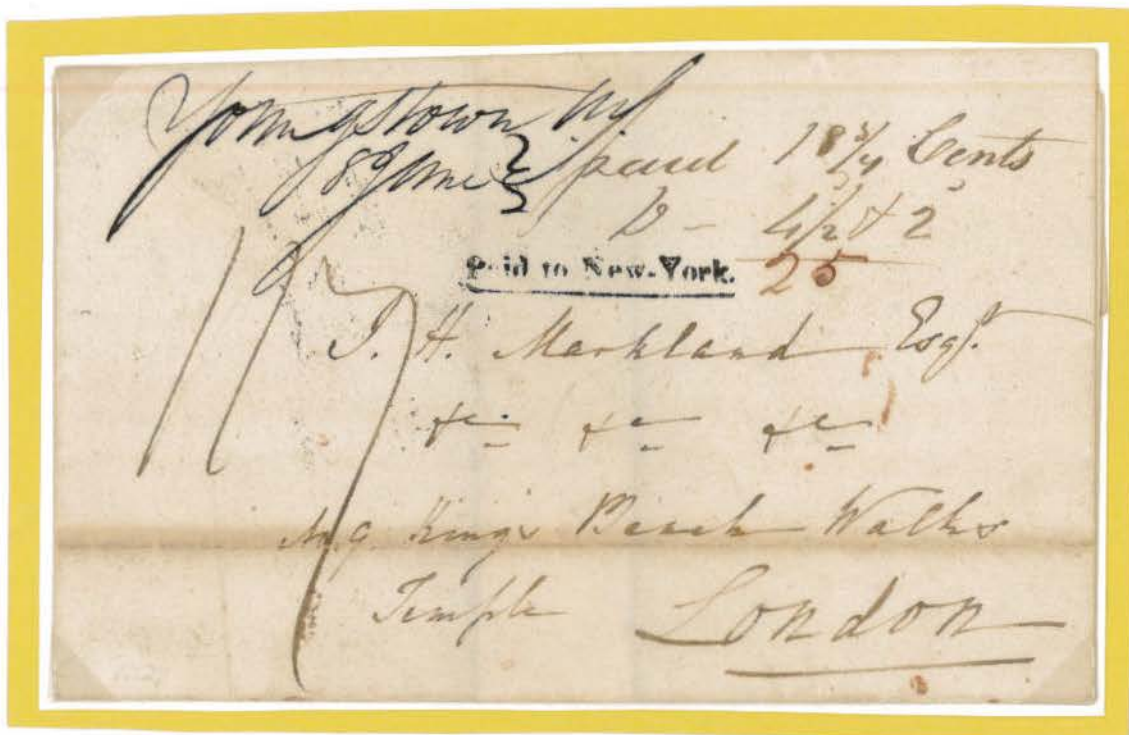 Youngstown NY
8 June paid 18 3/4 Cents
D - 4 1/2 & 2
Paid to New-York. 25
J. H. Markland Esqr.
&c &c &c
No 9 Kings Bench Walks
Temple London